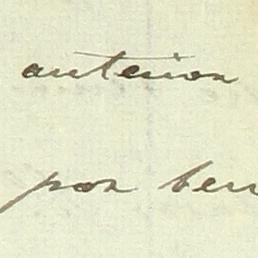 anterior
por ser